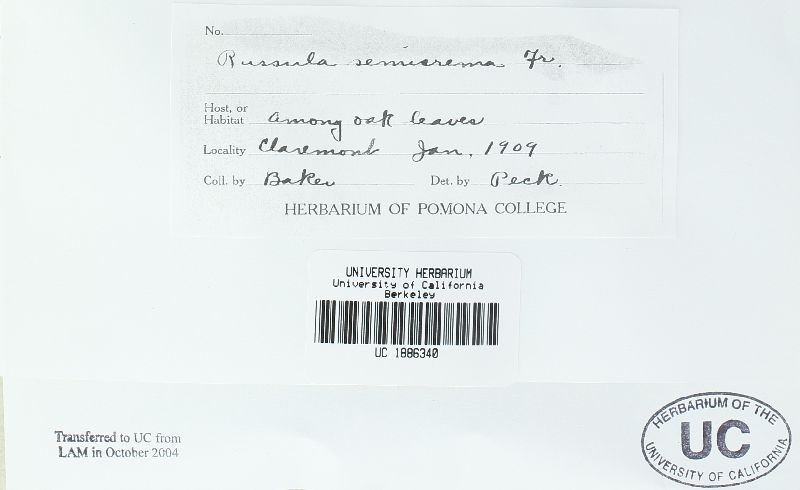 No.
Russula semicrema Fr.
Host, or
Habitat among oak leaves
Locality Claremont Jan. 1909
Coll. by Baker Det. by Peck.
HERBARIUM OF POMONA COLLEGE
UNIVERSITY HERBARIUM
University of California
Berkeley
UC 1886340
Transferred to UC from
LAM in October 2004
HERBARIUM OF THE
UC
UNIVERSITY OF CALIFORNIA